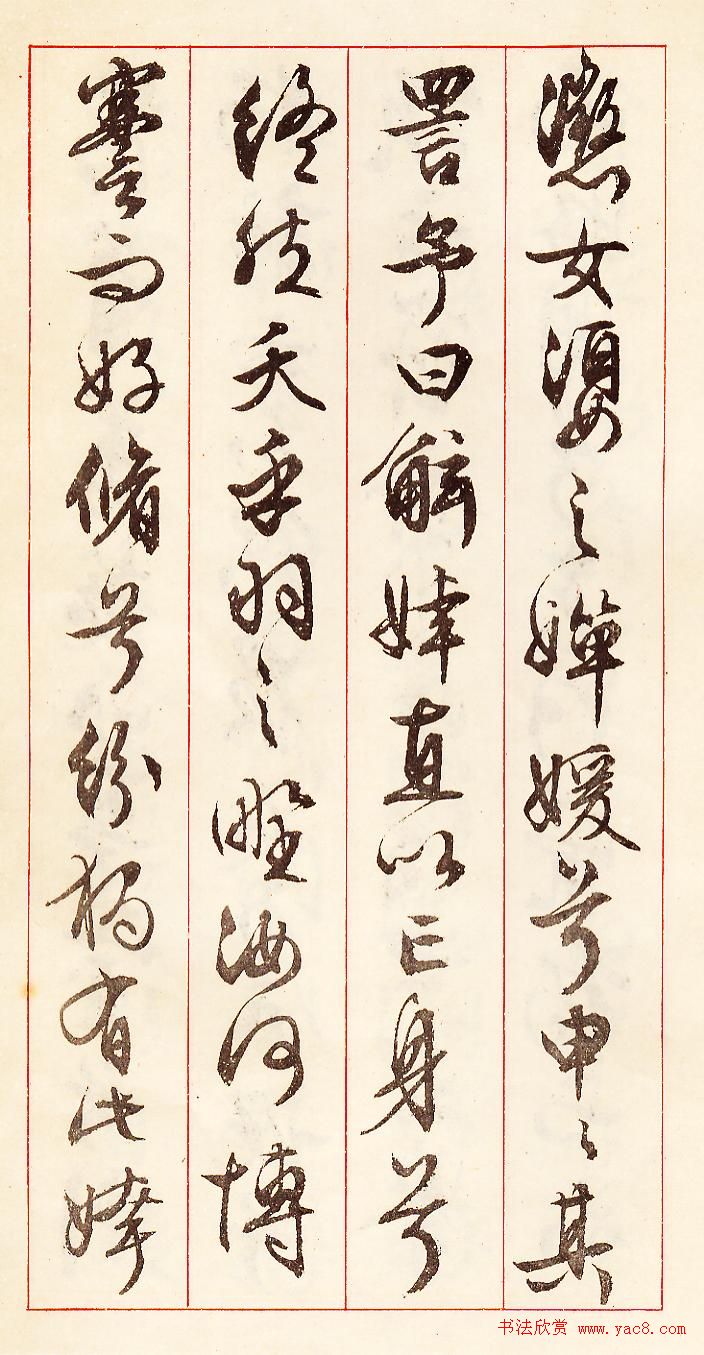 懲女嬃之嬋媛兮申〻其
詈予曰鯀婞直以亡身兮
終然夭乎羽之野汝何博
謇而好脩兮紛獨有此姱
书法欣赏 www.yac8.com